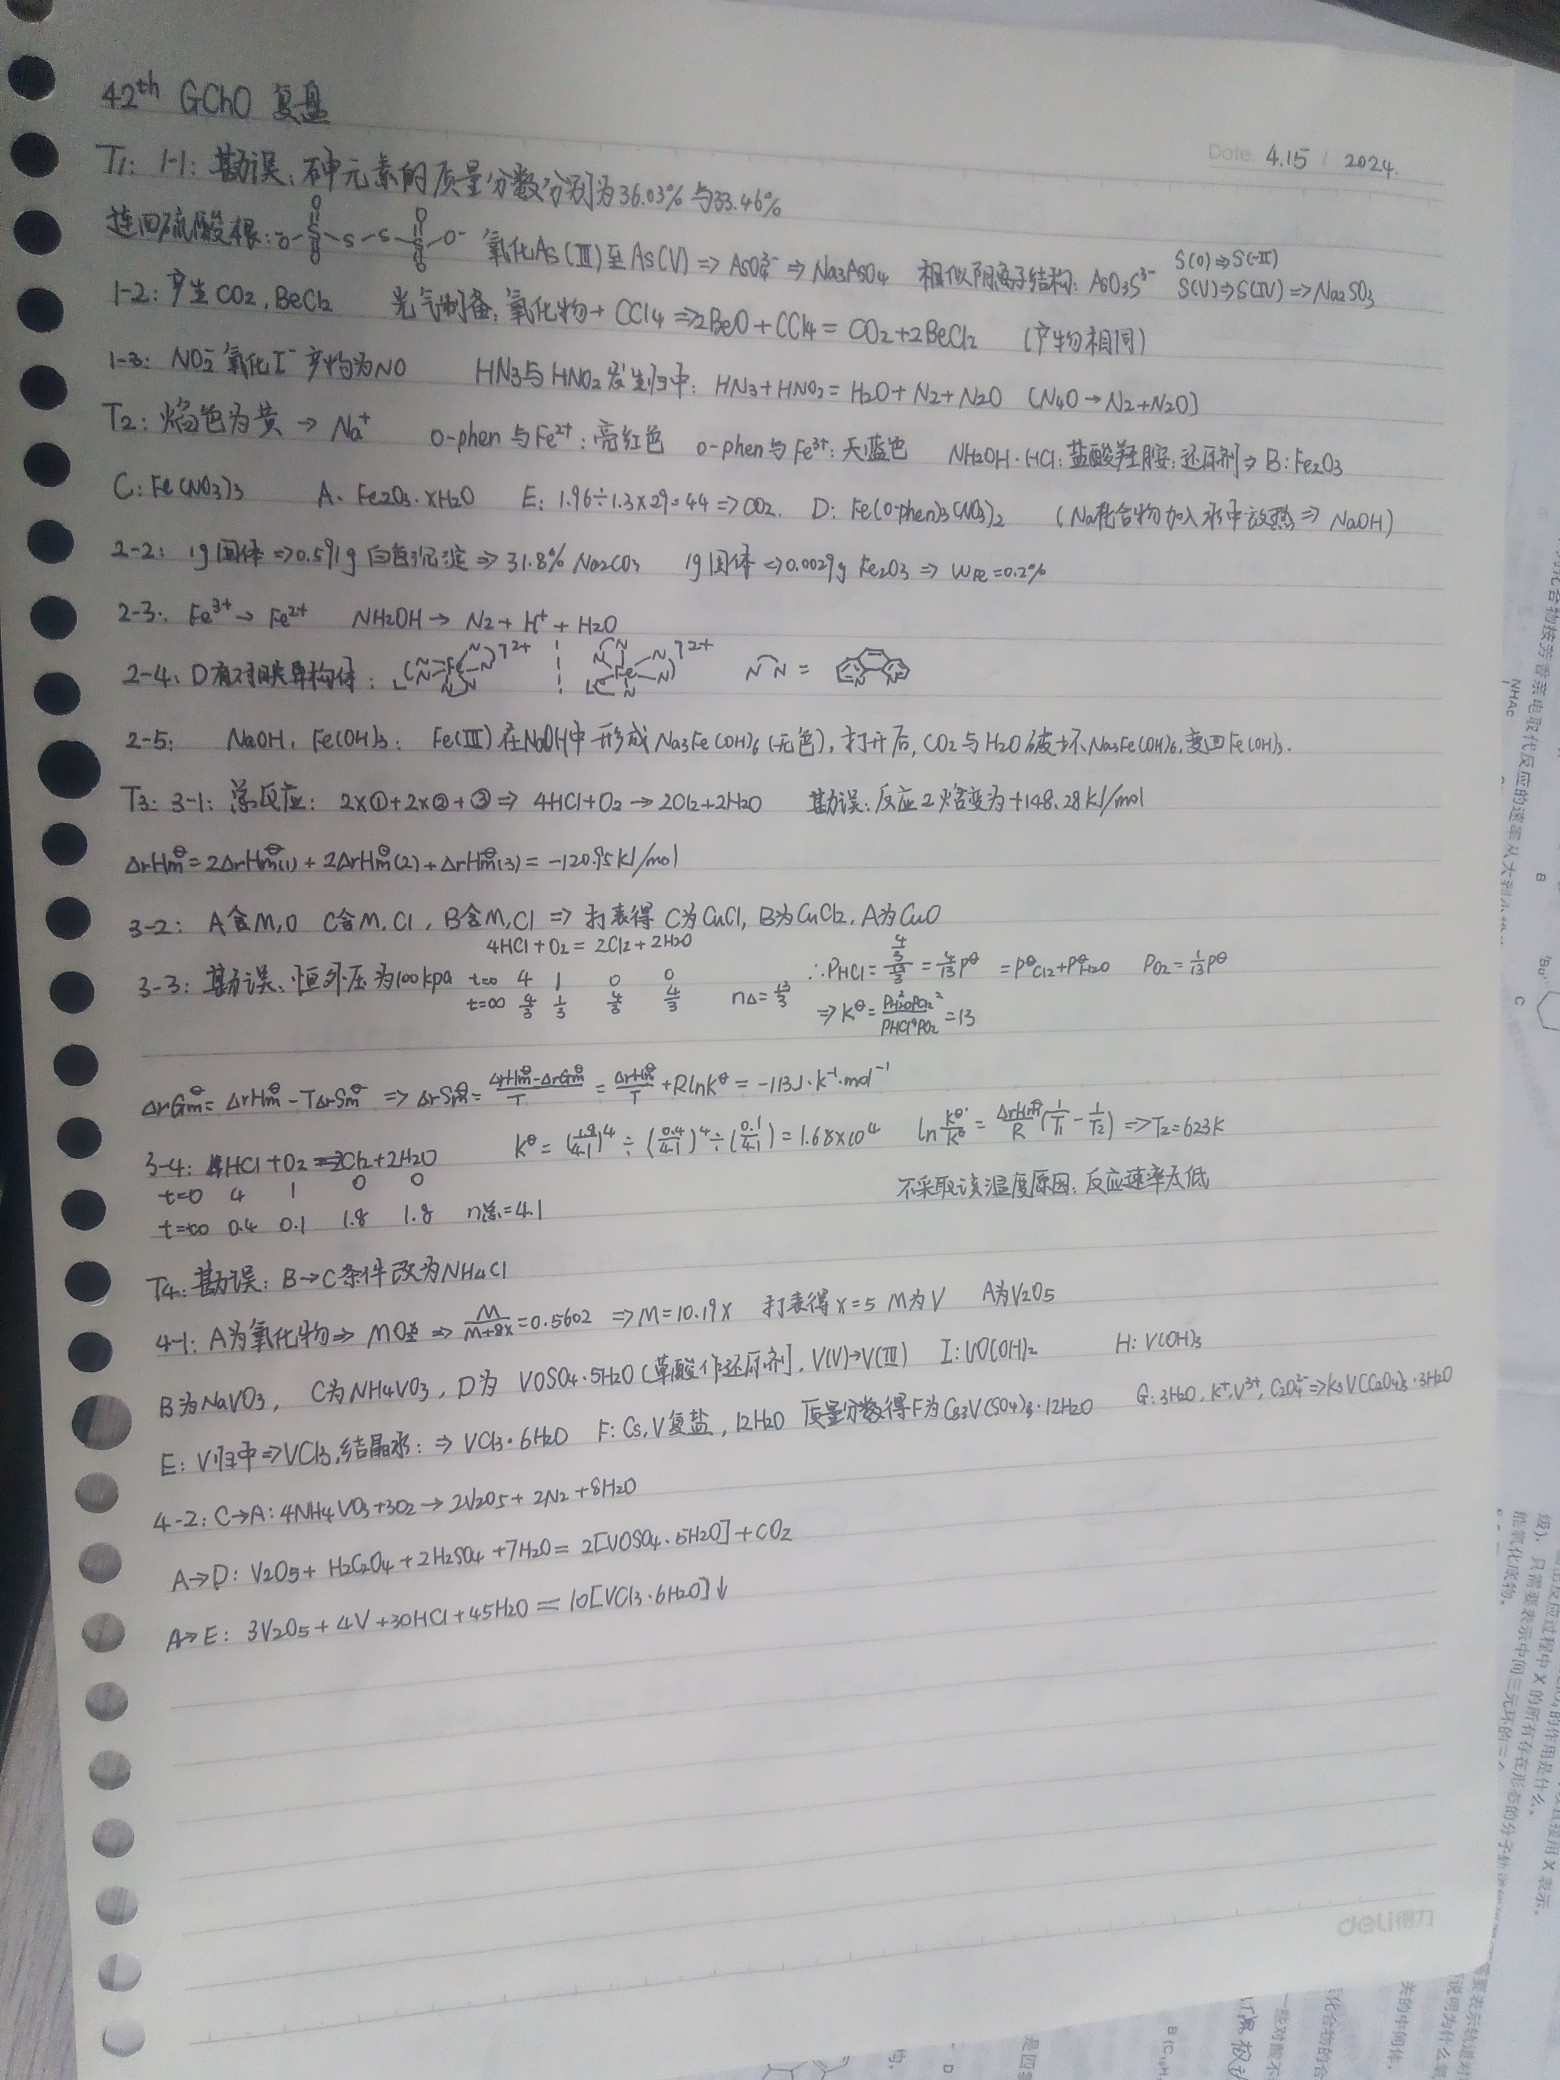 42th GChO 复盘
Date. 4.15 / 2024.
T1: 1-1: 勘误: 砷元素的质量分数分别为36.03%与33.46%
连四硫酸根: 氧化As(III)至As(V) ⇒ AsO4^3- ⇒ Na3AsO4 相似阴离子结构: AsO3S^3- S(0)⇒S(-II) S(V)⇒S(IV) ⇒ Na2SO3
1-2: 产生CO2, BeCl2 光气制备: 氧化物+CCl4 ⇒ 2BeO+CCl4=CO2+2BeCl2 (产物相同)
1-3: NO2^-氧化I^-产物为NO HN3与HNO2发生归中: HN3+HNO2=H2O+N2+N2O (N4O→N2+N2O)
T2: 焰色为黄 → Na+ o-phen与Fe2+: 亮红色 o-phen与Fe3+: 天蓝色 NH2OH·HCl: 盐酸羟胺: 还原剂 ⇒ B: Fe2O3
C: Fe(NO3)3 A. Fe2O3·xH2O E: 1.96÷1.3×29=44 ⇒ CO2. D: Fe(o-phen)3(NO3)2 (Na化合物加入水中放热 ⇒ NaOH)
2-2: 1g固体 ⇒ 0.591g白色沉淀 ⇒ 31.8% Na2CO3 1g固体 ⇒ 0.0029g Fe2O3 ⇒ wFe=0.2%
2-3: Fe3+ → Fe2+ NH2OH → N2 + H+ + H2O
2-4: D有对映异构体:
2-5: NaOH, Fe(OH)3: Fe(III)在NaOH中形成Na3Fe(OH)6(无色), 打开后, CO2与H2O破坏Na3Fe(OH)6, 变回Fe(OH)3.
T3: 3-1: 总反应: 2×①+2×②+③ ⇒ 4HCl+O2→2Cl2+2H2O 勘误: 反应2焓变为+148.28kJ/mol
ΔrHm^θ=2ΔrHm^θ(1)+2ΔrHm^θ(2)+ΔrHm^θ(3)=-120.95kJ/mol
3-2: A含M,O C含M,Cl, B含M,Cl ⇒ 打表得C为CuCl, B为CuCl2, A为CuO
4HCl+O2=2Cl2+2H2O
3-3: 勘误: 恒外压为100kpa t=0 4 1 0 0
t=∞ 4/3 1/3 4/3 4/3 n总=13/3 ∴PHCl=(4/3)/(13/3)=4/13p^θ =p^θCl2+p^θH2O PO2=1/13p^θ
⇒K^θ=PH2O^2PCl2^2/PHCl^4PO2=13
ΔrGm^θ=ΔrHm^θ-TΔrSm^θ ⇒ ΔrSm^θ=(ΔrHm^θ-ΔrGm^θ)/T=ΔrHm^θ/T+RlnK^θ=-113J·k^-1·mol^-1
3-4: 4HCl+O2=2Cl2+2H2O K^θ=(1.8/4.1)^4÷(0.4/4.1)^4÷(0.1/4.1)=1.68×10^4 ln K^θ'/K^θ=ΔrHm^θ/R(1/T1-1/T2) ⇒T2=623K
t=0 4 1 0 0
不采取该温度原因: 反应速率太低
t=∞ 0.4 0.1 1.8 1.8 n总=4.1
T4: 勘误: B→C条件改为NH4Cl
4-1: A为氧化物 ⇒ MOx/2 ⇒ M/(M+8x)=0.5602 ⇒M=10.19x 打表得x=5 M为V A为V2O5
B为NaVO3, C为NH4VO3, D为 VOSO4·5H2O(草酸作还原剂), V(V)→V(III) I: VO(OH)2 H: V(OH)3
E: V归中⇒VCl3, 结晶水: ⇒ VCl3·6H2O F: Cs, V复盐, 12H2O 质量分数得F为Cs3V(SO4)3·12H2O G: 3H2O, K+, V3+, C2O4^2- ⇒K3V(C2O4)3·3H2O
4-2: C→A: 4NH4VO3+3O2→2V2O5+2N2+8H2O
A→D: V2O5+H2C2O4+2H2SO4+7H2O=2[VOSO4·5H2O]+CO2
A→E: 3V2O5+4V+30HCl+45H2O=10[VCl3·6H2O]↓
deli得力